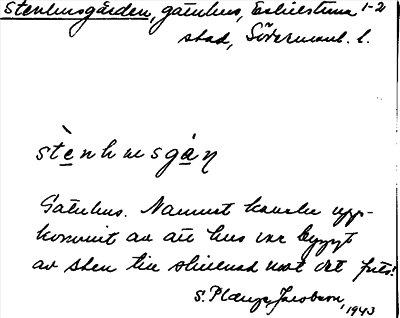 Stenhusgården, gatuhus, Eskilstuna 1-2
stad, Södermanl. l.
stènhusgán
Gatuhus. Namnet kanske upp-
kommit av att hus var byggt
av sten till skillnad mot det förs!
S. Plænge Jacobson, 1943